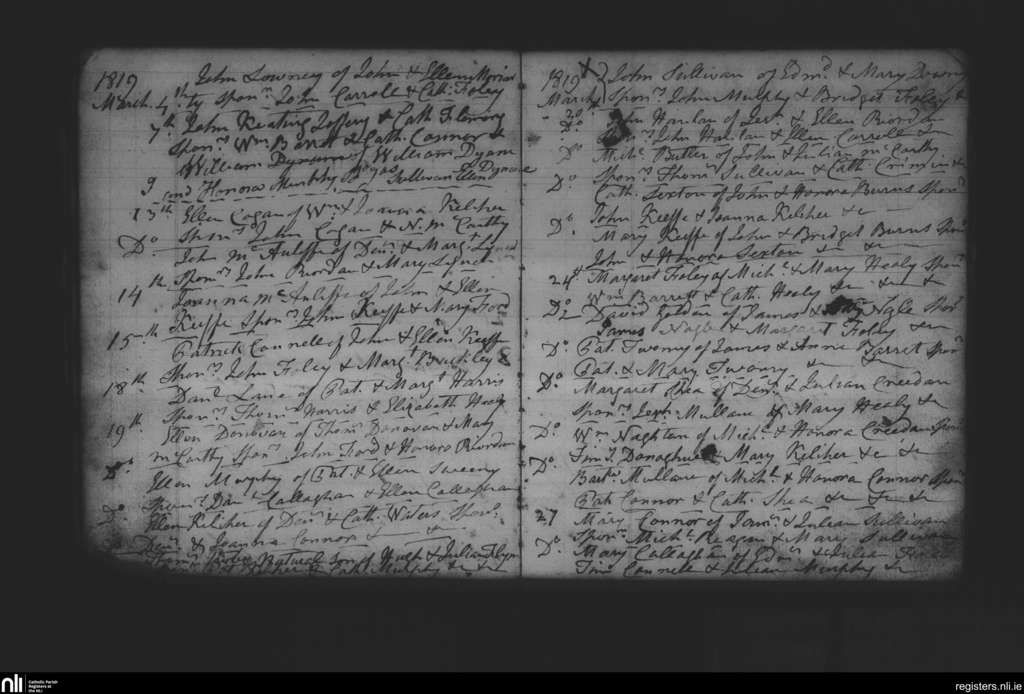 1819 John Lowney of John & Ellen
March. 4th ty Sponrs John Carroll & Cath: Foley
7th John Keating Joffery & Cath Flemery
Sponrs Wm Barrett & Cath: Connor &
William Dynane of William Dynane
9 and Honora Murphy Sullivan Ellen Dynane
13th Ellen Cogan of Wm & Joanna Kelcher
Sponrs John Cogan & N. McCarthy
Do John McAuliffe of Denis & Margt Lynch
Sponrs John Riordan & Mary Lynch
14th Joanna McAuliffe of John & Ellen
Keeffe Sponrs John Keeffe & Mary Ford
15nth Patrick Connell of John & Ellen Keeffe
Sponrs John Foley & Margt Buckley &
18th Danl Lane of Pat: & Margt Harris
Sponrs Thoms Harris & Elizabeth Healy
19th Ellen Donovan of Thoms Donovan & Mary
McCarthy Sponrs John Ford & Honora Riordan
Do Ellen Murphy of Pat: & Ellen Sweeny
Sponrs Danl Callaghan & Ellen Callaghan
Do Ellen Kelcher of Denis & Cath: Waters Sponrs
Denis & Joanna Connor &
Patrick son of Hugh & Julian Flynn
& Cath: Murphy & &
1819 X John Sullivan of Edmd & Mary Downy
March Sponrs John Murphy & Bridget Foley &
20 Do John Hanlan of Jerh & Ellen Riordan
Sponrs John Hanlan & Ellen Carroll &
Do Michl Butler of John & Julian McCarthy
Sponrs Thoms Sullivan & Cath: Crimin &
Do Cath: Sexton of John & Honora Burns Sponrs
John Keeffe & Joanna Kelcher &c
Do Mary Keeffe of John & Bridget Burns Sponrs
John & Honora Sexton & &
24th Margaret Foley of Michl & Mary Healy Sponrs
Wm Barrett & Cath: Healy & &
Do David of James & Nagle Spor
James Nagle & Margaret Foley &
Do Pat: Twomy of James & Annie Barret Sponrs
Pat: & Mary Twomy &
Do Margaret Shea of Denis & Julian Creedan
Sponrs Jerh Mullane & Mary Healy &
Do Wm Naghten of Michl & Honora Creedan Sponrs
Timt Donaghue & Mary Kelcher &c &
Do Bartw Mullane of Michl & Honora Connor Sponrs
Pat: Connor & Cath: Shea & & &
27 Mary Connor of Jams & Julian Sullivan
Sponrs Michl Reagan & Mary Sullivan
Do Mary Callaghan of Edmd & Julian
Tim: Connell & Julian Murphy &
nli
Catholic Parish
Registers at
the NLI
registers.nli.ie